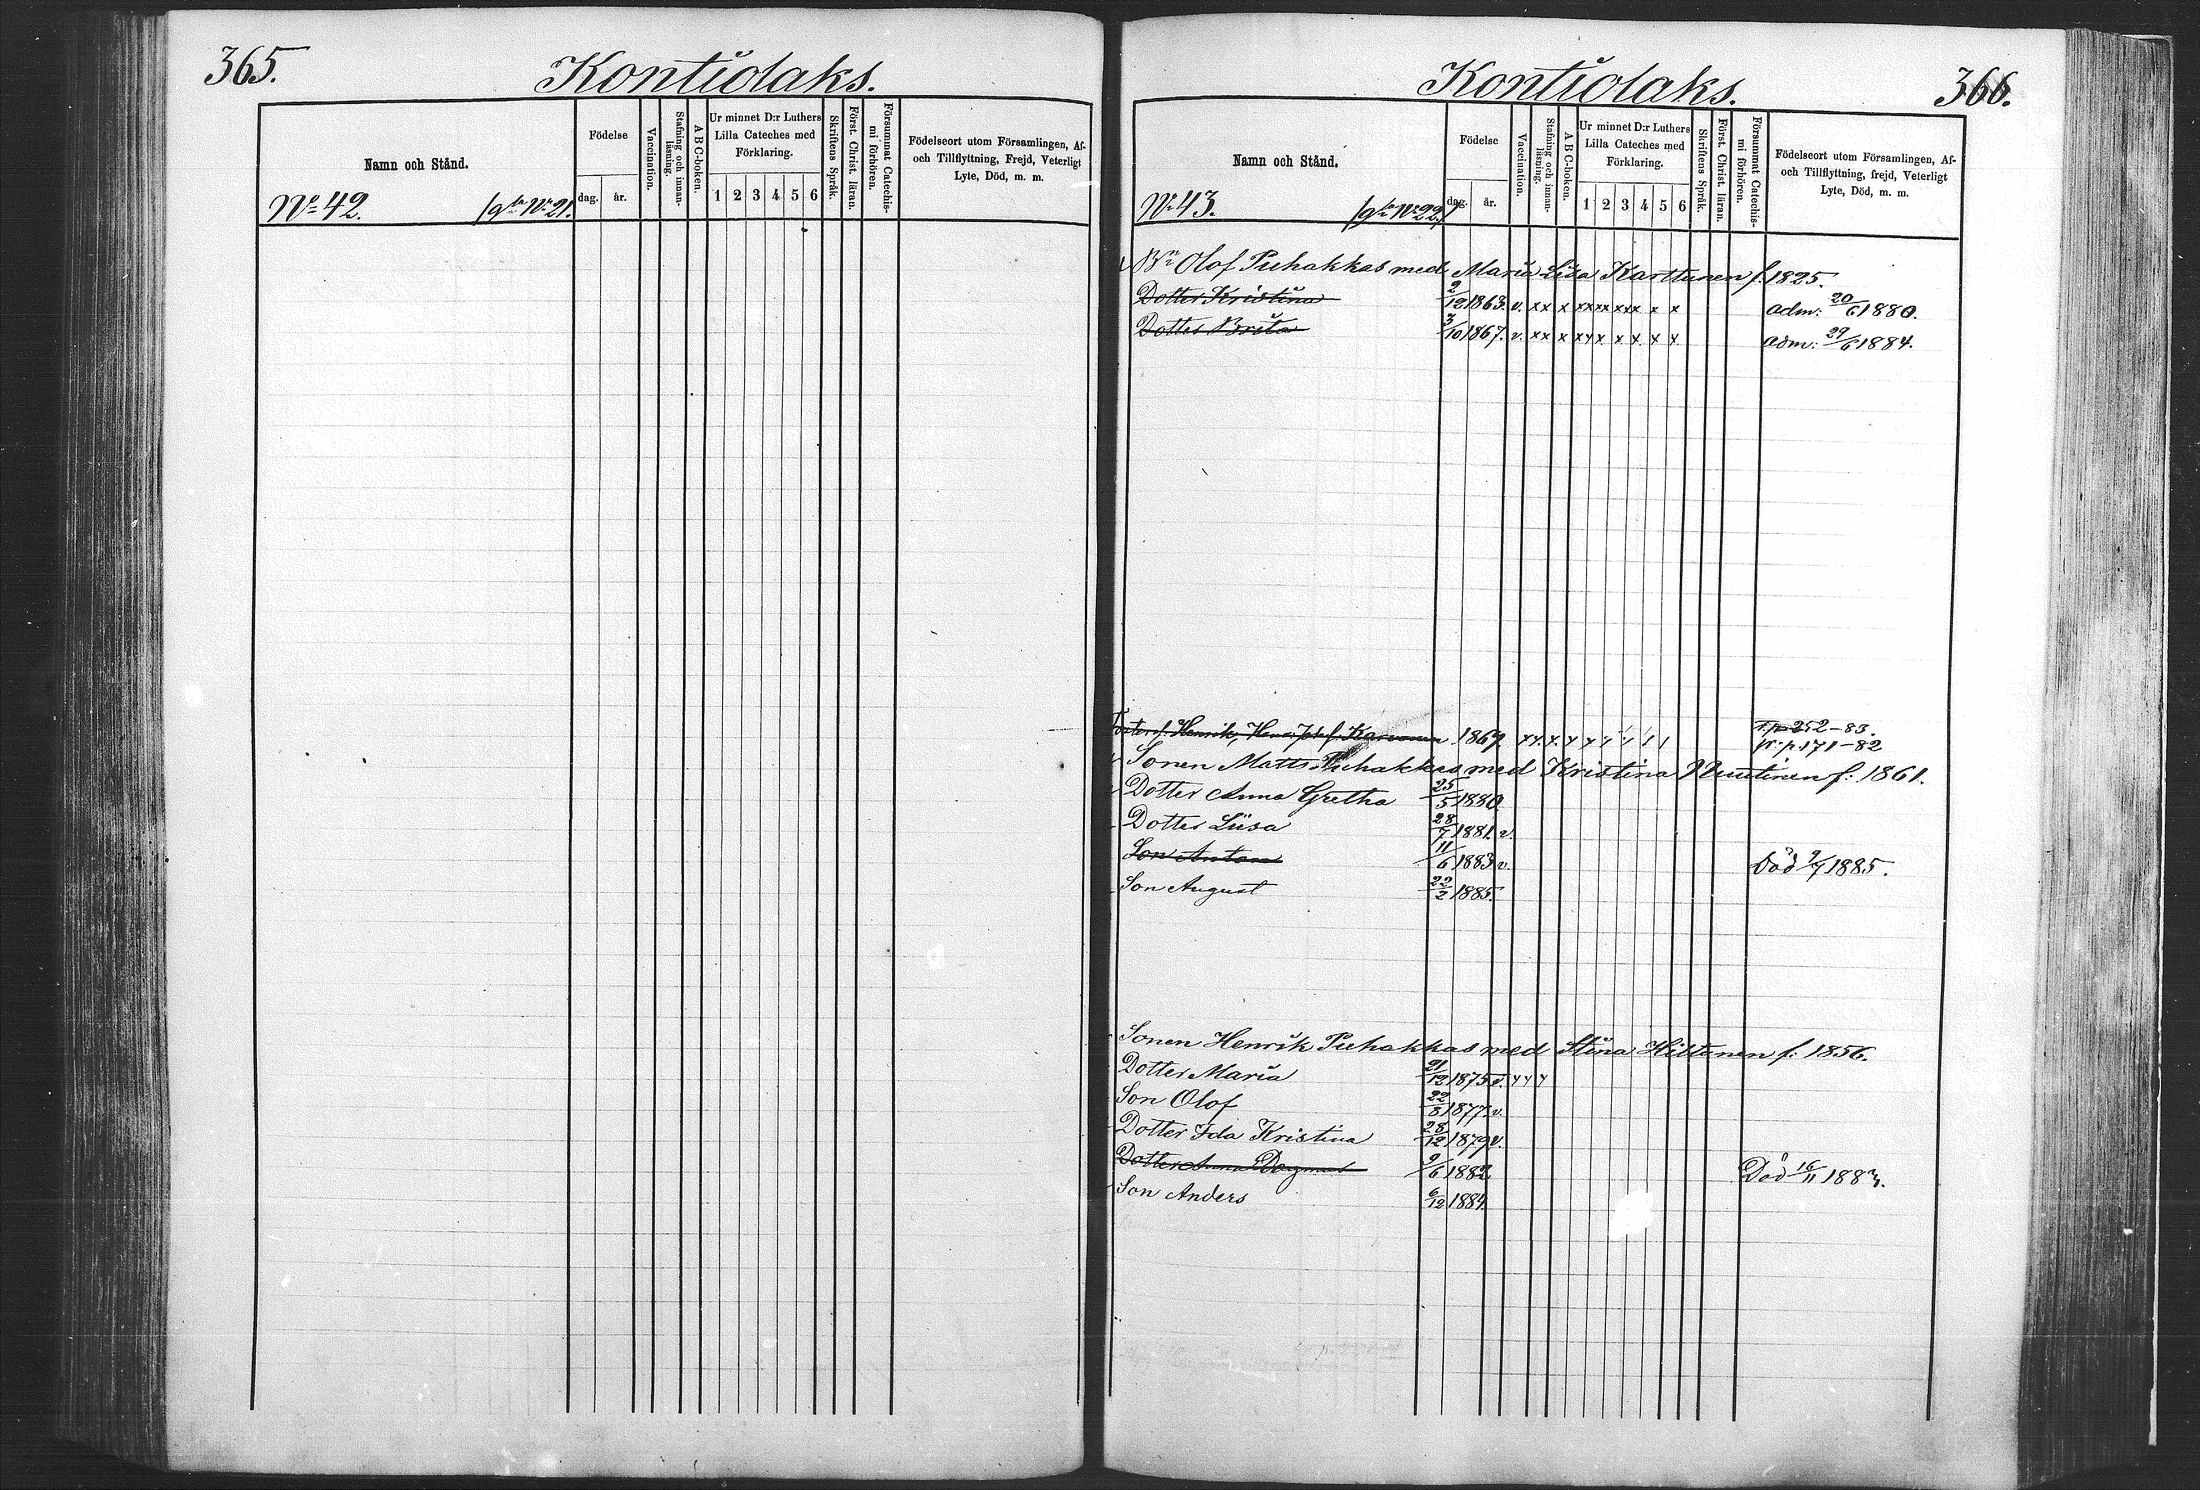 365.
Kontiolaks.
Namn och Stånd.
Födelse
dag.
år.
Vaccination.
Stafning och innan-
läsning.
A B C-boken.
Ur minnet D:r Luthers
Lilla Cateches med
Förklaring.
1 2 3 4 5 6
Skriftens Språk.
Först. Christ. läran.
Försummat Catechis-
mi förhören.
Födelseort utom Församlingen, Af-
och Tillflyttning, Frejd, Veterligt
Lyte, Död, m. m.
No 42. No 21.
Kontiolaks.
366.
Namn och Stånd.
Födelse
dag.
år.
Vaccination.
Stafning och innan-
läsning.
A B C-boken.
Ur minnet D:r Luthers
Lilla Cateches med
Förklaring.
1 2 3 4 5 6
Skriftens Språk.
Först. Christ. läran.
Försummat Catechis-
mi förhören.
Födelseort utom Församlingen, Af-
och Tillflyttning, frejd, Veterligt
Lyte, Död, m. m.
No 43. No 22.
Bn Olof Puhakkas med Maria Lisa Karttunen f. 1825.
Dotter Kristina 2/12 1863. v. xx x xxxx xxx x x adm: 20/6 1880.
Dotter Brita 3/10 1867. v. xx x xxx x x x x adm: 29/6 1884.
Henrik, Karvonen 1867. 252-83.
fr. p. 171-82
Sonen Matts Puhakkas med Kristina Nuutinen f: 1861.
Dotter Anna Gretha 25/5 1880.
Dotter Liisa 28/7 1881. v.
Son Anton 11/6 1883 v. Död 9/7 1885.
Son August 22/2 1885.
Sonen Henrik Puhakkas med Stina Hiltunen f: 1856.
Dotter Maria 21/12 1875 v. x x x
Son Olof 22/8 1877. v.
Dotter Ida Kristina 28/12 1879 v.
Dotter Anna Dagmar 9/6 1882 Död 16/11 1883.
Son Anders 6/12 1884.